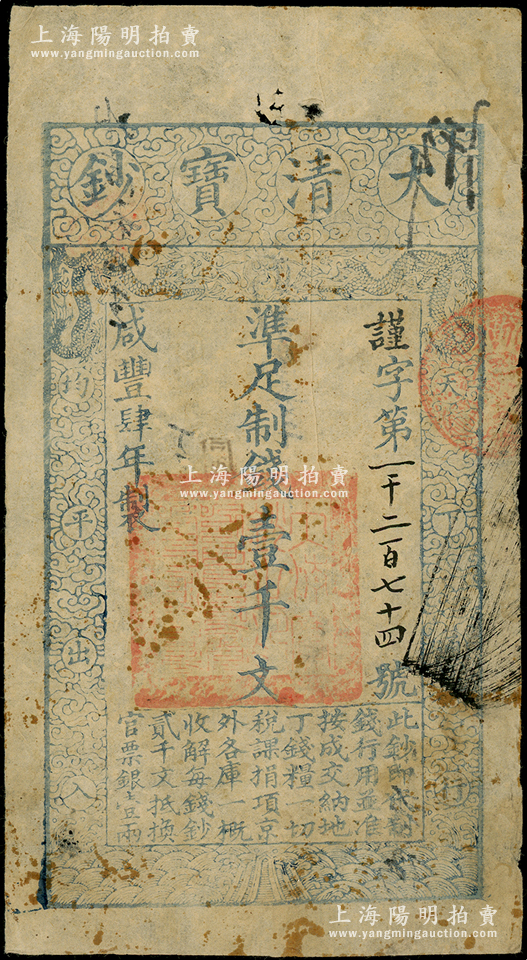 上海陽明拍賣
www.yangmingauction.com
大清寶鈔
天下
行
均平出入
謹字第一千二百七十四號
準足制錢壹千文
咸豐肆年製
此鈔即代制
錢行用並准
按成交納地
丁錢糧一切
稅課捐項京
外各庫一概
收解每錢鈔
貳千文抵換
官票銀壹兩
上海陽明拍賣
www.yangmingauction.com
上海陽明拍賣
www.yangmingauction.com